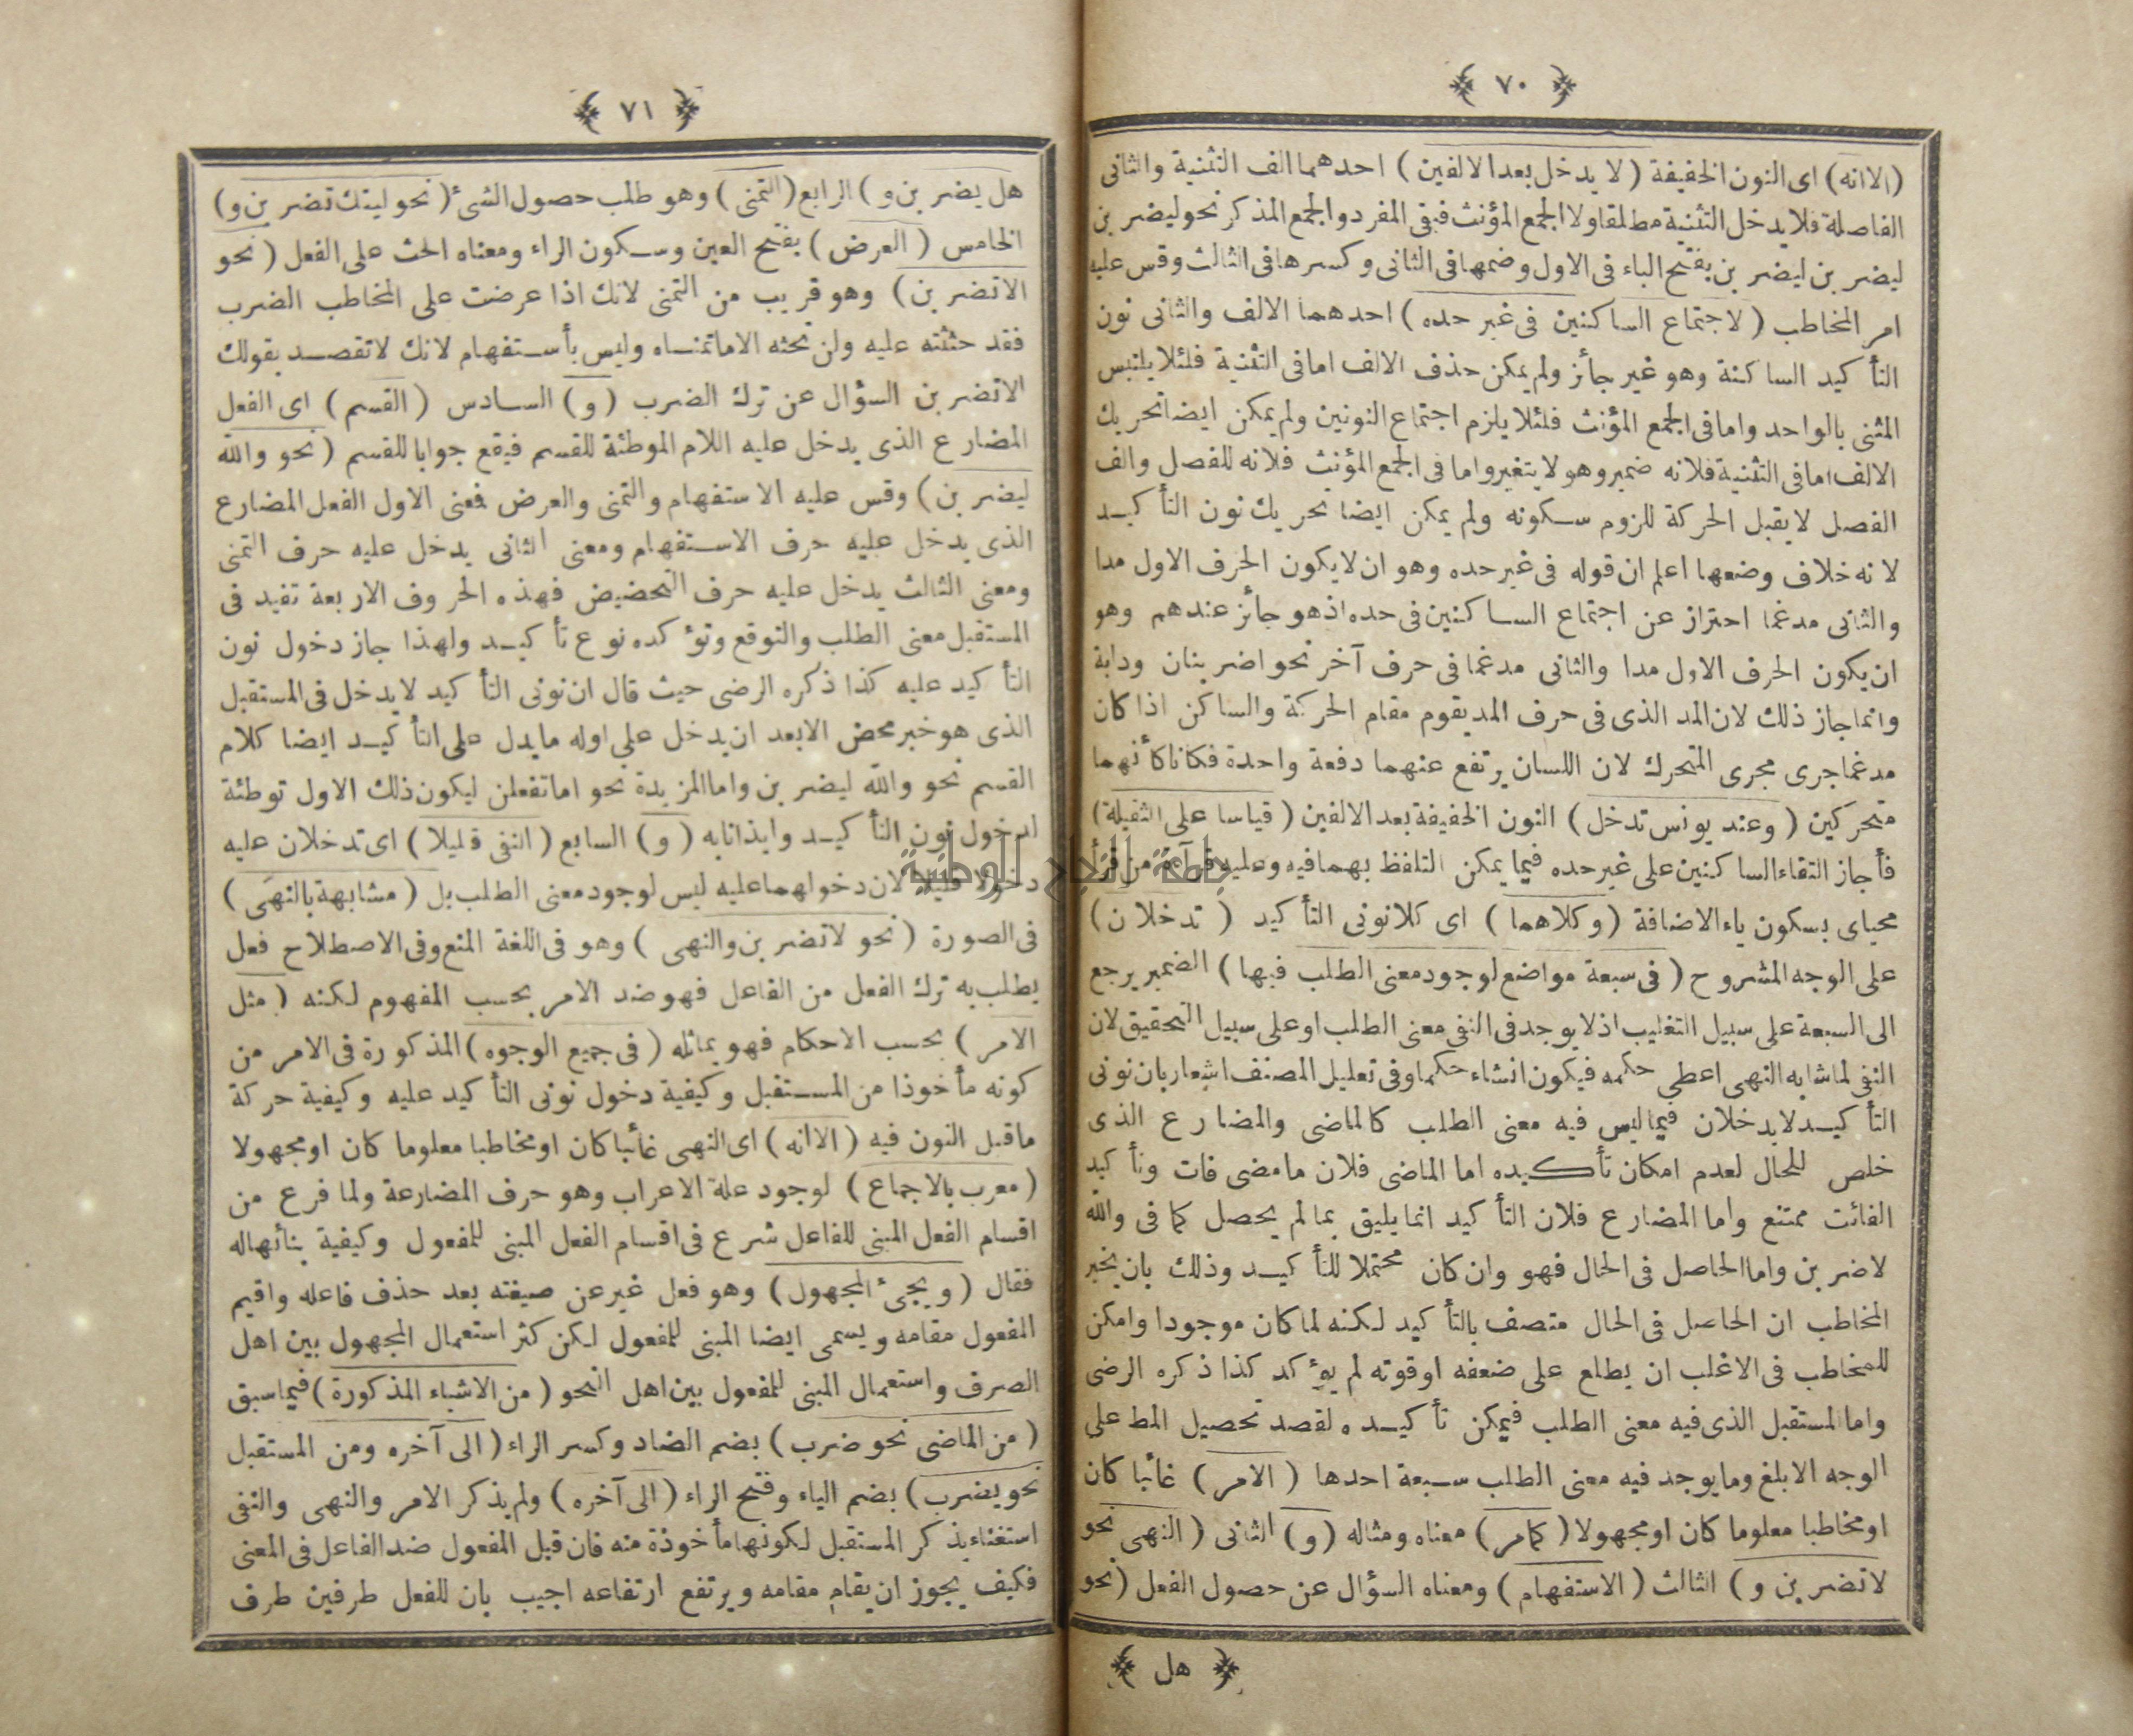 ﴿ ٧٠ ﴾
(الا انه) اى النون الخفيفة (لا يدخل بعد الالفين) احدهما الف التثنية والثانى
الفاصلة فلا يدخل التثنية مطلقا ولا الجمع المؤنث فبقى المفرد والجمع المذكر نحو ليضربن
ليضربن ليضربن بفتح الباء فى الاول وضمها فى الثانى وكسرها فى الثالث وقس عليه
امر المخاطب (لاجتماع الساكنين فى غير حده) احدهما الالف والثانى نون
التأكيد الساكنة وهو غير جائز ولم يمكن حذف الالف اما فى التثنية فلئلا يلتبس
المثنى بالواحد واما فى الجمع المؤنث فلئلا يلزم اجتماع النونين ولم يمكن ايضا تحريك
الالف اما فى التثنية فلانه ضمير وهو لا يتغير واما فى الجمع المؤنث فلانه للفصل والف
الفصل لا يقبل الحركة للزوم سكونه ولم يمكن ايضا تحريك نون التأكيد
لانه خلاف وضعها اعلم ان قوله فى غير حده وهو ان لا يكون الحرف الاول مدا
والثانى مدغما احتراز عن اجتماع الساكنين فى حده اذ هو جائز عندهم وهو
ان يكون الحرف الاول مدا والثانى مدغما فى حرف آخر نحو اضربنان ودابة
وانما جاز ذلك لان المد الذى فى حرف المد يقوم مقام الحركة والساكن اذا كان
مدغما جرى مجرى المتحرك لان اللسان يرتفع عنهما دفعة واحدة فكانا كأنهما
متحركين (وعند يونس تدخل) النون الخفيفة بعد الالفين (قياسا على الثقيلة)
فأجاز التقاء الساكنين على غير حده فيما يمكن التلفظ بهما فيه وعليه قراءة من قرأ
محياى بسكون ياء الاضافة (وكلاهما) اى كلا نونى التأكيد (تدخلان)
على الوجه المشروح (فى سبعة مواضع لوجود معنى الطلب فيها) الضمير يرجع
الى السبعة على سبيل التغليب اذ لا يوجد فى النفى معنى الطلب او على سبيل التحقيق لان
النفى لما شابه النهى اعطى حكمه فيكون انشاء حكما وفى تعليل المصنف اشعار بان نونى
التأكيد لا يدخلان فيما ليس فيه معنى الطلب كالماضى والمضارع الذى
خلص للحال لعدم امكان تأكيده اما الماضى فلان ما مضى فات وتأكيد
الفائت ممتنع واما المضارع فلان التأكيد انما يليق بما لم يحصل كما فى والله
لاضربن واما الحاصل فى الحال فهو وان كان محتملا للتأكيد وذلك بان يخبر
المخاطب ان الحاصل فى الحال متصف بالتأكيد لكنه لما كان موجودا وامكن
للمخاطب فى الاغلب ان يطلع على ضعفه او قوته لم يؤكد كذا ذكره الرضى
واما المستقبل الذى فيه معنى الطلب فيمكن تأكيده لقصد تحصيل المط على
الوجه الابلغ وما يوجد فيه معنى الطلب سبعة احدها (الامر) غائبا كان
او مخاطبا معلوما كان او مجهولا (كما مر) معناه ومثاله (و) الثانى (النهى نحو
لا تضربن و) الثالث (الاستفهام) ومعناه السؤال عن حصول الفعل (نحو
﴿ هل ﴾
﴿ ٧١ ﴾
هل يضربن و) الرابع (التمنى) وهو طلب حصول الشئ (نحو ليتك تضربن و)
الخامس (العرض) بفتح العين وسكون الراء ومعناه الحث على الفعل (نحو
الا تضربن) وهو قريب من التمنى لانك اذا عرضت على المخاطب الضرب
فقد حثثته عليه ولن تحثه الا ما تمناه وليس بأستفهام لانك لا تقصد بقولك
الا تضربن السؤال عن ترك الضرب (و) السادس (القسم) اى الفعل
المضارع الذى يدخل عليه اللام الموطئة للقسم فيقع جوابا للقسم (نحو والله
ليضربن) وقس عليه الاستفهام والتمنى والعرض فمعنى الاول الفعل المضارع
الذى يدخل عليه حرف الاستفهام ومعنى الثانى يدخل عليه حرف التمنى
ومعنى الثالث يدخل عليه حرف التحضيض فهذه الحروف الاربعة تفيد فى
المستقبل معنى الطلب والتوقع وتؤكده نوع تأكيد ولهذا جاز دخول نون
التأكيد عليه كذا ذكره الرضى حيث قال ان نونى التأكيد لا يدخل فى المستقبل
الذى هو خبر محض الا بعد ان يدخل على اوله ما يدل على التأكيد ايضا كلام
القسم نحو والله ليضربن واما المزيدة نحو اما تفعلن ليكون ذلك الاول توطئة
لدخول نون التأكيد وايذانا به (و) السابع (النفى قليلا) اى تدخلان عليه
دخولا قليلا لان دخولهما عليه ليس لوجود معنى الطلب بل (مشابهة بالنهى)
فى الصورة (نحو لا تضربن والنهى) وهو فى اللغة المنع وفى الاصطلاح فعل
يطلب به ترك الفعل من الفاعل فهو ضد الامر بحسب المفهوم لكنه (مثل
الامر) بحسب الاحكام فهو يماثله (فى جميع الوجوه) المذكورة فى الامر من
كونه مأخوذا من المستقبل وكيفية دخول نونى التأكيد عليه وكيفية حركة
ما قبل النون فيه (الا انه) اى النهى غائبا كان او مخاطبا معلوما كان او مجهولا
(معرب بالاجماع) لوجود علة الاعراب وهو حرف المضارعة ولما فرع من
اقسام الفعل المبنى للفاعل شرع فى اقسام الفعل المبنى للمفعول وكيفية بنائها له
فقال (ويجئ المجهول) وهو فعل غير عن صيغته بعد حذف فاعله واقيم
المفعول مقامه ويسمى ايضا المبنى للمفعول لكن كثر استعمال المجهول بين اهل
الصرف واستعمال المبنى للمفعول بين اهل النحو (من الاشياء المذكورة) فيما سبق
(من الماضى نحو ضرب) بضم الضاد وكسر الراء (الى آخره ومن المستقبل
نحو يضرب) بضم الياء وفتح الراء (الى آخره) ولم يذكر الامر والنهى والنفى
استغناء بذكر المستقبل لكونها مأخوذة منه فان قيل المفعول ضد الفاعل فى المعنى
فكيف يجوز ان يقام مقامه ويرتفع ارتفاعه اجيب بان للفعل طرفين طرف
جامعة النجاح الوطنية